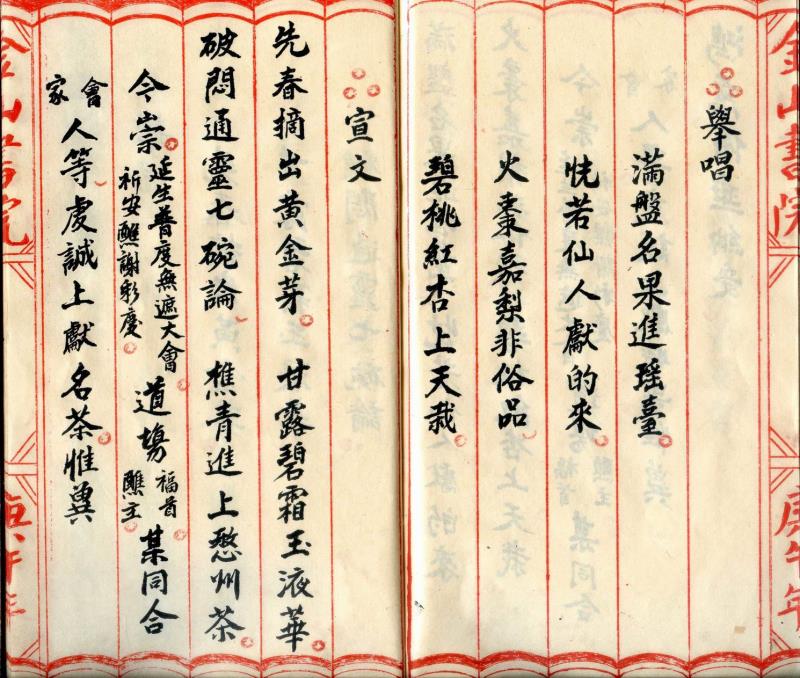 金山書院
庚午年
舉唱
滿盤名果進瑤臺
恍若仙人獻的來
火棗嘉梨非俗品
碧桃紅杏上天栽
宣文
先春摘出黃金芽 甘露碧霜玉液華
破悶通靈七碗論 樵青進上愁州茶
今崇 延生普度無遮大會 祈安醮謝彩慶 道場 福首 醮主 某同合
會 家 人等虔誠上獻名茶惟冀
金山書院
庚午年